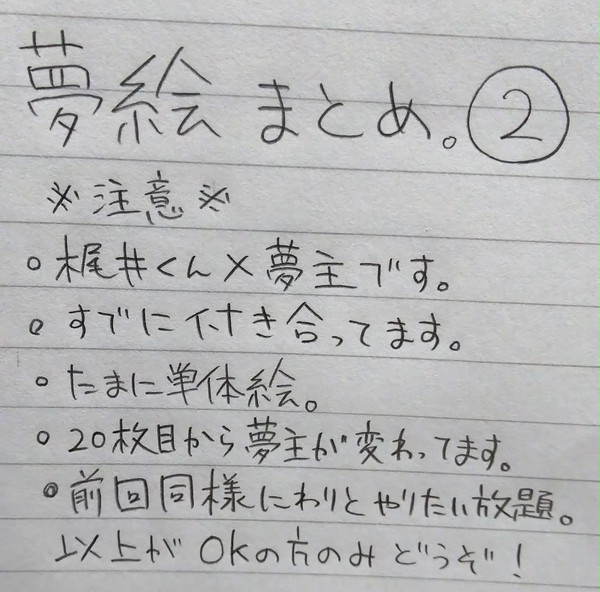 夢絵まとめ。②
※注意※
○梶井くん×夢主です。
○すでに付き合ってます。
○たまに単体絵。
○20枚目から夢主が変わってます。
○前回同様にわりとやりたい放題。
以上がOKの方のみどうぞ!